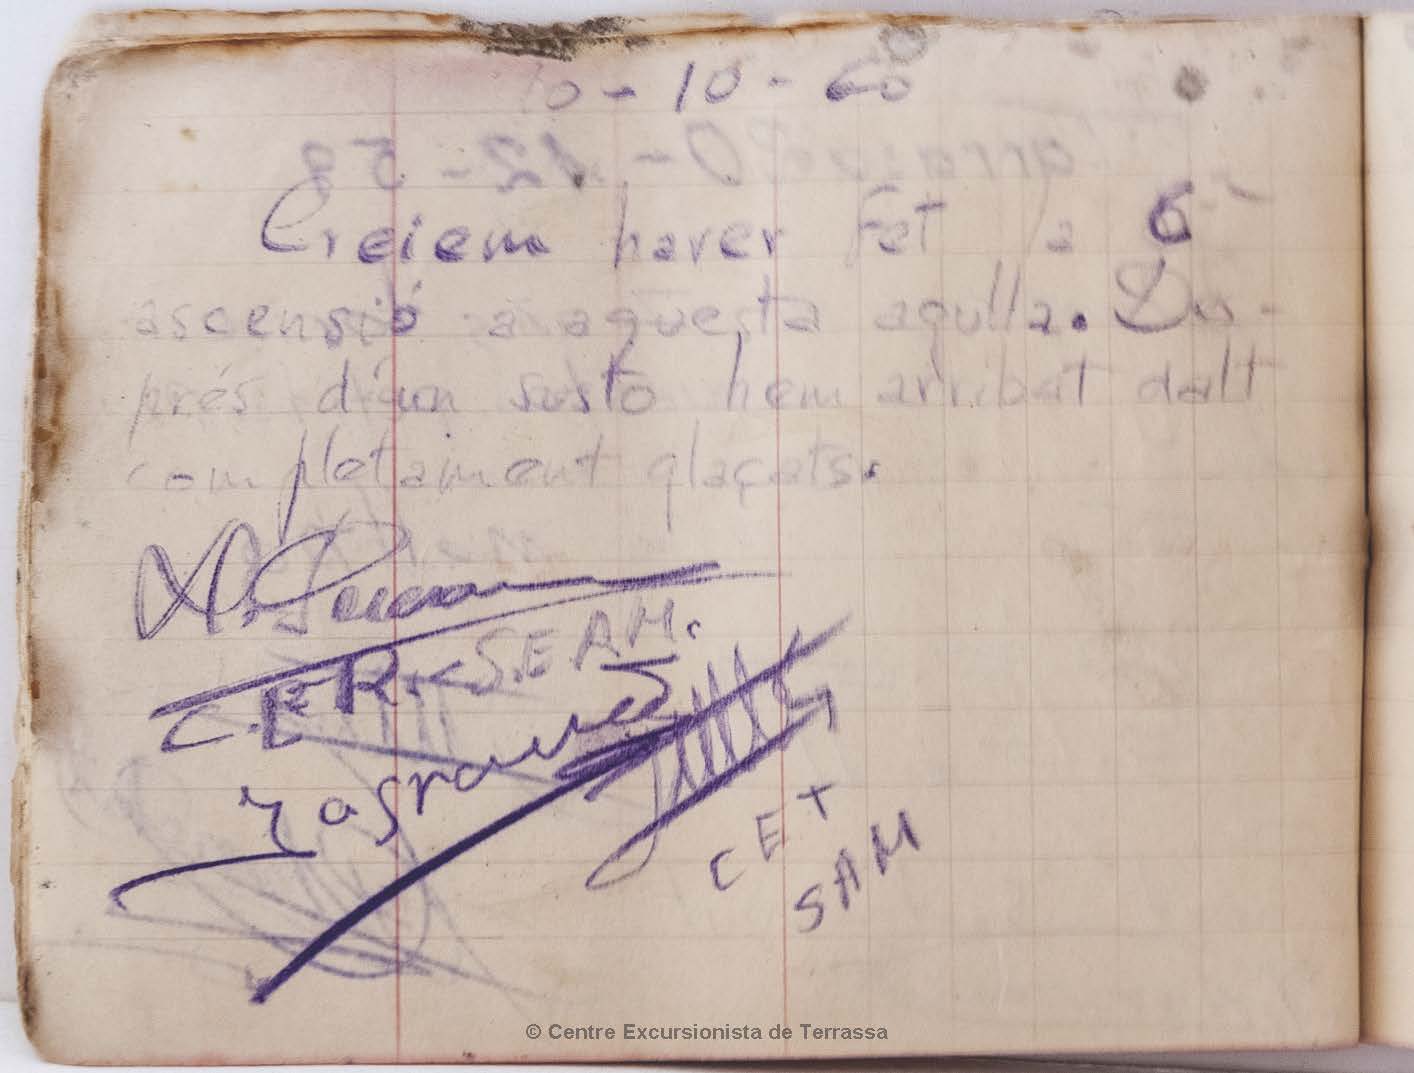 10-10-60
Creiem haver fet la 6ª
ascensió a aquesta agulla. Des-
prés d'un susto hem arribat dalt
completament glaçats.
C.E.R. S.E.A.M.
CET
SAM
© Centre Excursionista de Terrassa